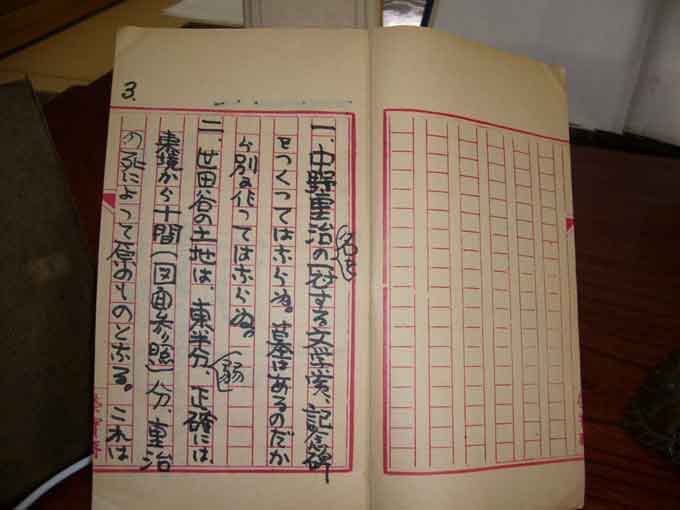 3.
一、中野重治の名を冠する文学賞、記念碑
をつくつてはならぬ。墓はあるのだか
ら別に作つてはならぬ。
二、世田谷の土地は、東半分、正確には、
東境から十間(図面参照)分、重治
の死によつて原のものとなる。これは